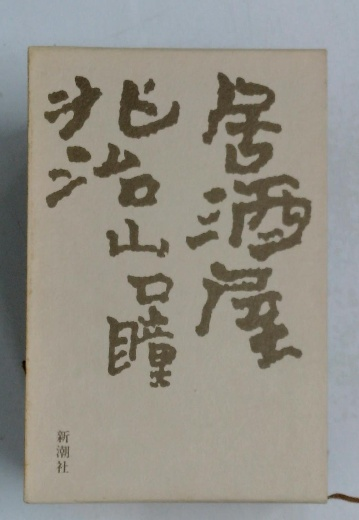 居酒屋
兆治
山口瞳
新潮社